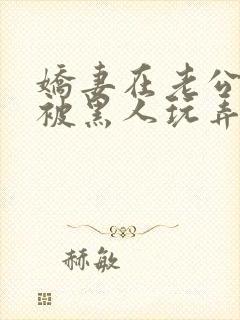 嬌妻在老公
被黑人玩弄
赫敏